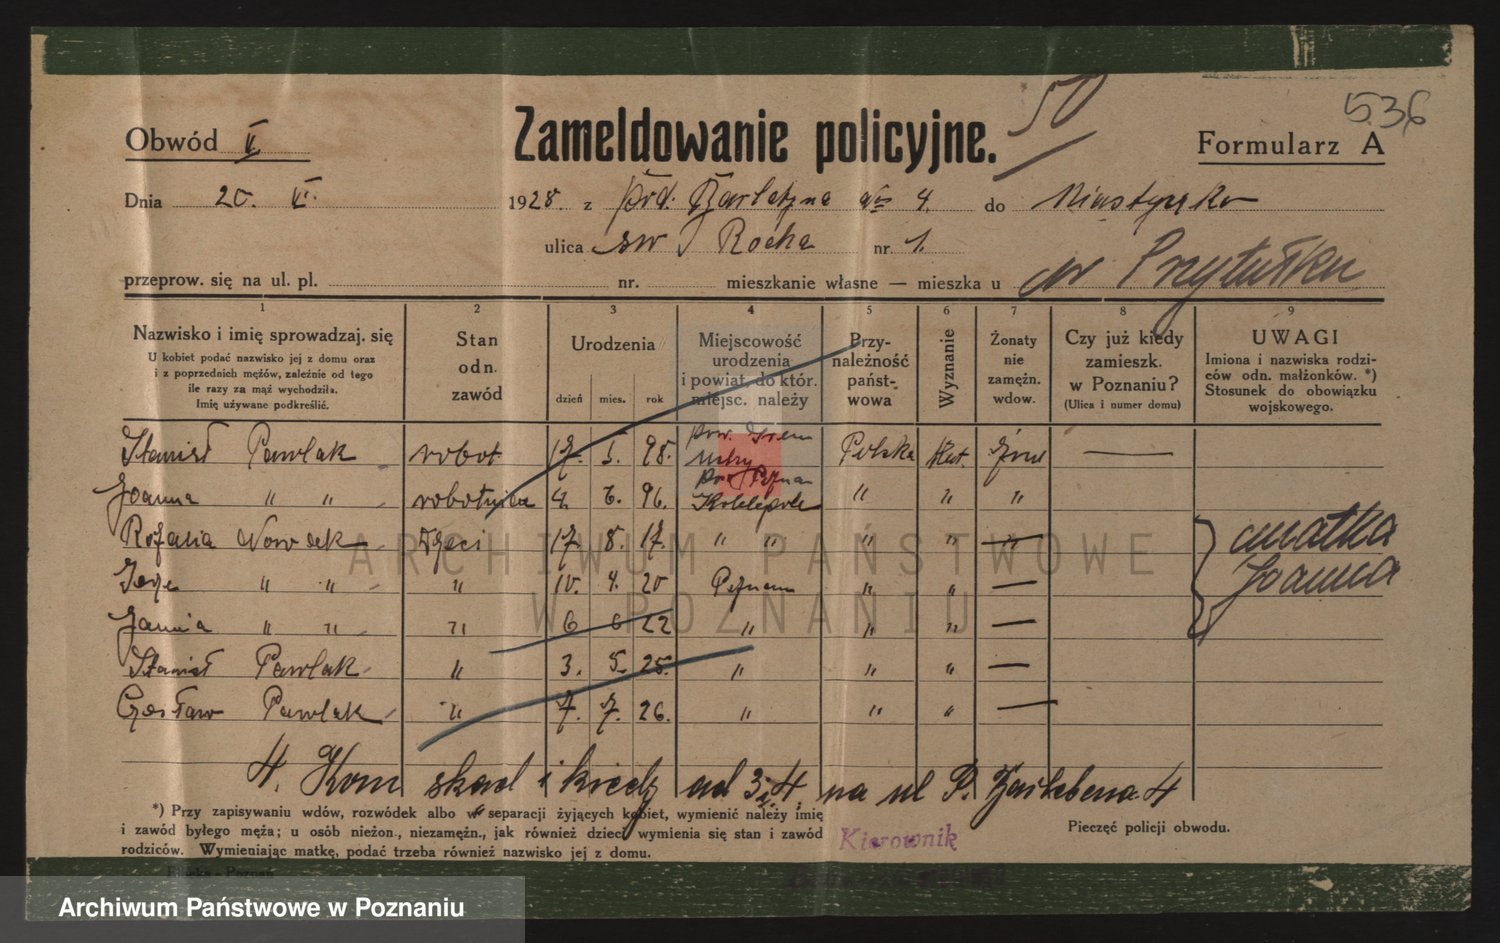 536
50
Obwód V.
Zameldowanie policyjne.
Formularz A
Dnia 20. VI. 1928. z 4. do
ulica św Rocha nr. 1.
przeprow. się na ul. pl. nr. mieszkanie własne — mieszka u w Przytułku
1 2 3 4 5 6 7 8 9
Nazwisko i imię sprowadzaj. się
U kobiet podać nazwisko jej z domu oraz
i z poprzednich mężów, zależnie od tego
ile razy za mąż wychodziła.
Imię używane podkreślić.
Stan
odn.
zawód
Urodzenia
dzień mies. rok
Miejscowość
urodzenia
i powiat, do któr.
miejsc. należy
Przy-
należność
państ-
wowa
Wyznanie
Żonaty
nie
zamężn.
wdow.
Czy już kiedy
zamieszk.
w Poznaniu?
(Ulica i numer domu)
UWAGI
Imiona i nazwiska rodzi-
ców odn. małżonków. *)
Stosunek do obowiązku
wojskowego.
Stanisł Pawlak robot 17. 5. 98. pow. Śrem Polska Kat. —
Joanna " " robotnica 4. 6. 96. pow Poznan " " "
Rozalia Nowaek Dzieci 17. 8. 17. " " " " "
" " " 10. 4. 20 Poznan " " —
Janina " " " 6 6 22 " " " —
Stanisł Pawlak " 3. 5. 25. " " " —
Czesław Pawlak " 7. 7. 26. " " " —
matka
Joanna
4. Kom skąd i kiedy ad 3 i 4. na ul P. 4
*) Przy zapisywaniu wdów, rozwódek albo w separacji żyjących kobiet, wymienić należy imię
i zawód byłego męża; u osób nieżon., niezamężn., jak również dzieci, wymienia się stan i zawód
rodziców. Wymieniając matkę, podać trzeba również nazwisko jej z domu.
Kierownik
Pieczęć policji obwodu.
ARCHIWUM PAŃSTWOWE
W POZNANIU
Archiwum Państwowe w Poznaniu